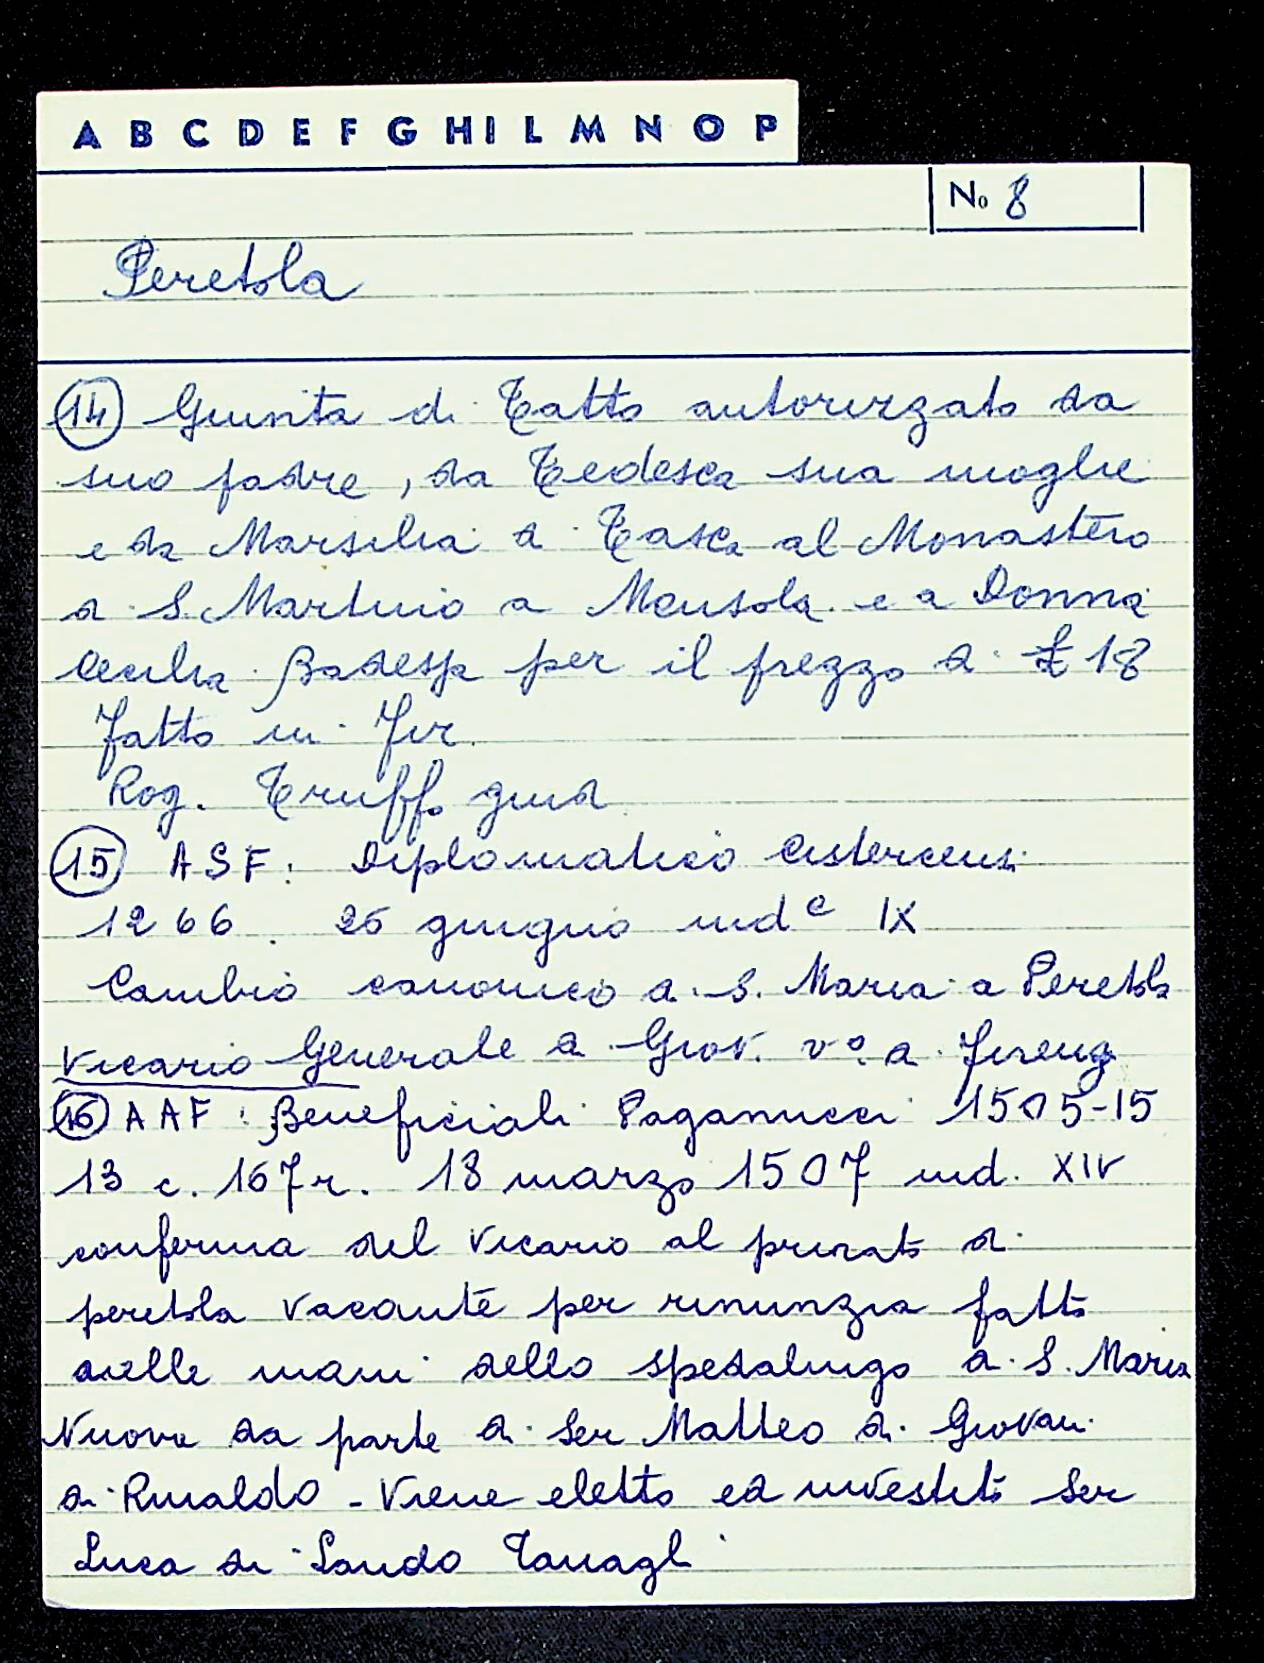 A B C D E F G H I L M N O P
No 8
Peretola
14 Giunta di Tatto autorizzato da
suo padre, da Tedesca sua moglie
e da Marsilia di Tasca al Monastero
di S. Martino a Mensola e a Donna
Cecilia Badessa per il prezzo di £ 18
fatto in Fir.
Rog. Truffo giud
15 ASF: Diplomatico Cistercensi
1266. 26 giugno ind e IX
Cambio canonico di S. Maria a Peretola
Vicario Generale di Giov. vo. di Firenze
16 AAF: Beneficiali Paganucci 1505-15
13 c. 167r. 18 marzo 1507 ind. XIV
conferma del Vicario al priorato di
peretola vacante per rinunzia fatta
nelle mani dello spedalingo di S. Maria
Nuova da parte di Ser Matteo di Giovan.
di Rinaldo - Viene eletto ed investito Ser
Luca di Lando Tanagli